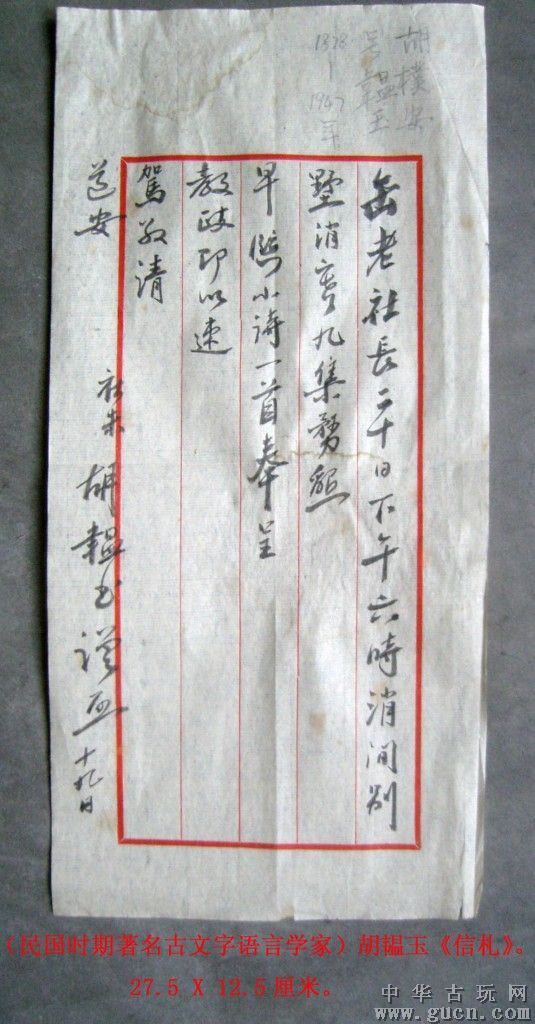 胡樸安
号韞玉
1878
—
1947年
缶老社長二十日下午六時消閒別
墅消寒九集務懇
早臨小诗一首奉呈
教政即以速
駕敬请
道安
社末胡韞玉謹
十九日
(民国时期著名古文字语言学家)胡韫玉《信札》。
27.5 X 12.5厘米。
中华古玩网
www.gucn.com